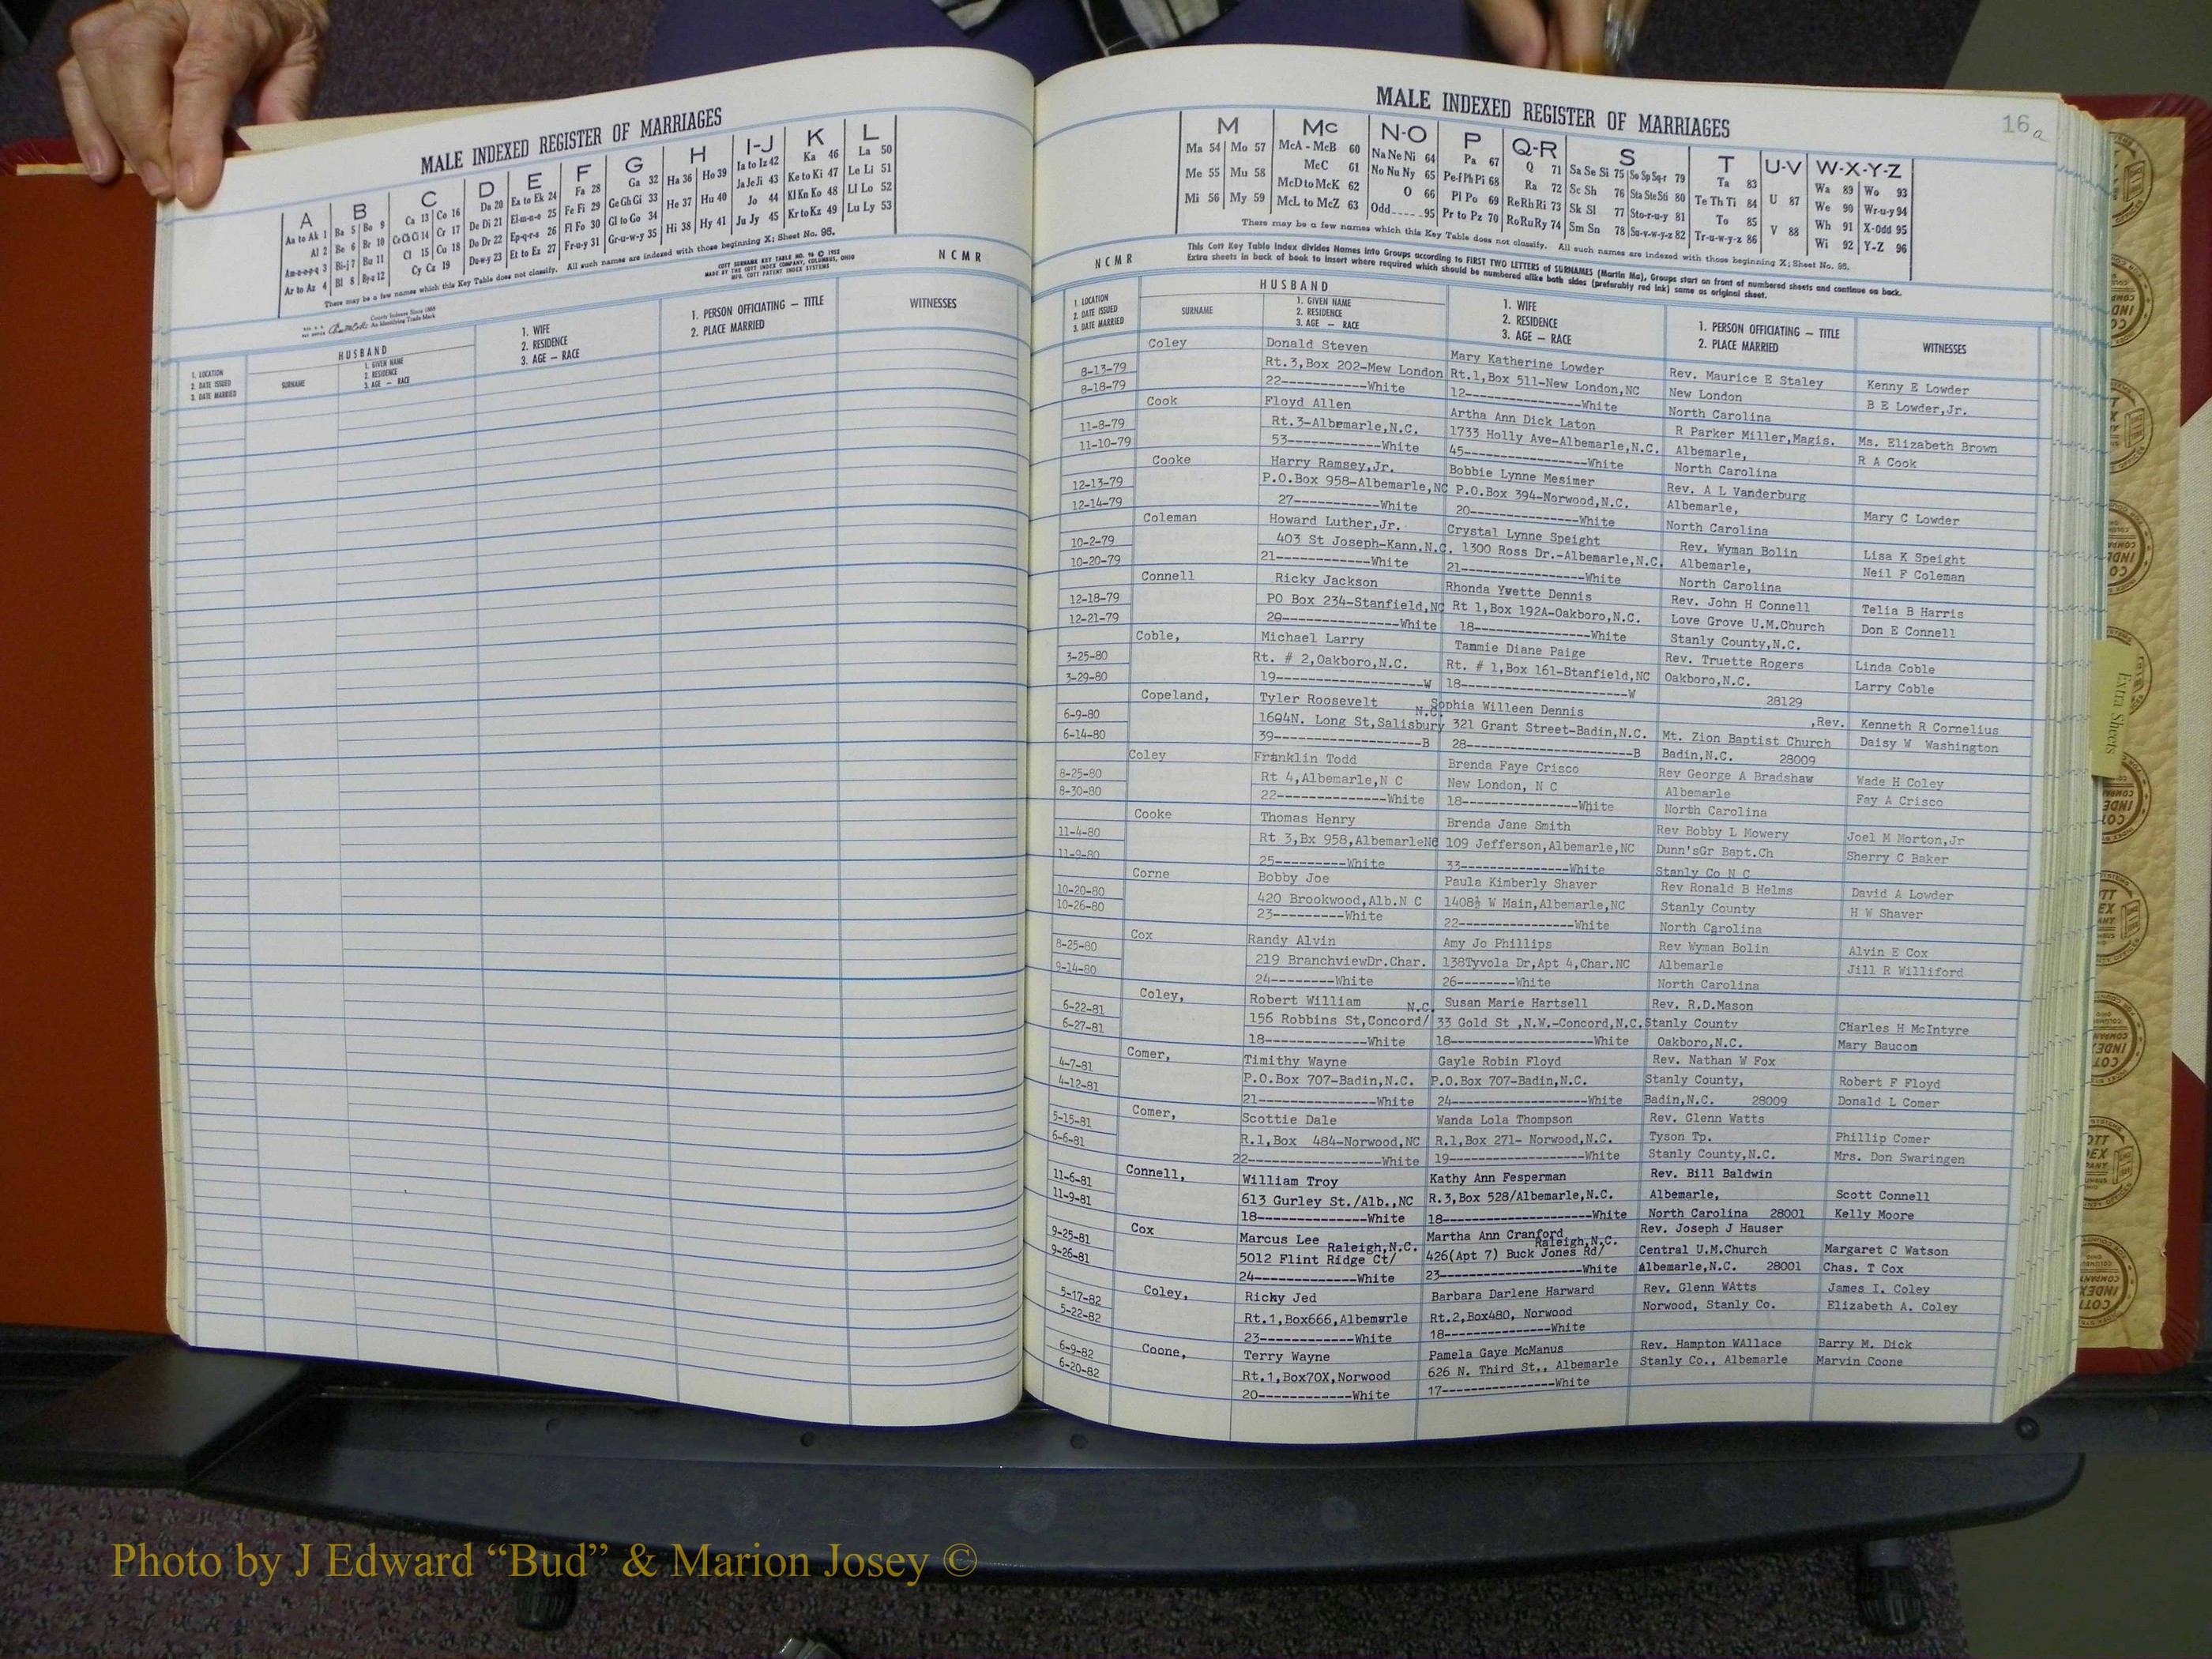 MALE INDEXED REGISTER OF MARRIAGES
A B C D E F G H I-J K L
Aa to Ak 1 Ba 5 Bo 9 Ca 13 Co 16 Da 20 Ea to Ek 24 Fa 28 Ga 32 Ha 36 Ho 39 Ia to Iz 42 Ka 46 La 50
Al 2 Be 6 Br 10 Ce Ch Ci 14 Cr 17 De Di 21 El-m-n-o 25 Fe Fi 29 Ge Gh Gi 33 He 37 Hu 40 Ja Je Ji 43 Ke to Ki 47 Le Li 51
Am-n-o-p-q 3 Bi-j 7 Bu 11 Cl 15 Cu 18 Do Dr 22 Ep-q-r-s 26 Fl Fo 30 Gl to Go 34 Hi 38 Hy 41 Jo 44 Kl Kn Ko 48 Ll Lo 52
Ar to Az 4 Bl 8 By-z 12 Cy Cz 19 Du-w-y 23 Et to Ez 27 Fr-u-y 31 Gr-u-w-y 35 Ju Jy 45 Kr to Kz 49 Lu Ly 53
There may be a few names which this Key Table does not classify. All such names are indexed with those beginning X; Sheet No. 95.
COTT SURNAME KEY TABLE NO. 96 © 1952
MADE BY THE COTT INDEX COMPANY, COLUMBUS, OHIO
MFG. COTT PATENT INDEX SYSTEMS
NCMR
County Indexes Since 1888
An Identifying Trade Mark
1. LOCATION
2. DATE ISSUED
3. DATE MARRIED
HUSBAND
SURNAME
1. GIVEN NAME
2. RESIDENCE
3. AGE — RACE
1. WIFE
2. RESIDENCE
3. AGE — RACE
1. PERSON OFFICIATING — TITLE
2. PLACE MARRIED
WITNESSES
MALE INDEXED REGISTER OF MARRIAGES
16a
M Mc N-O P Q-R S T U-V W-X-Y-Z
Ma 54 Mo 57 McA - McB 60 Na Ne Ni 64 Pa 67 Q 71 Sa Se Si 75 So Sp Sq-r 79 Ta 83 U 87 Wa 89 Wo 93
Me 55 Mu 58 McC 61 No Nu Ny 65 Pe-f Ph Pi 68 Ra 72 Sc Sh 76 Sta Ste Sti 80 Te Th Ti 84 V 88 We 90 Wr-u-y 94
Mi 56 My 59 McD to McK 62 O 66 Pl Po 69 Re Rh Ri 73 Sk Sl 77 Sto-r-u-y 81 To 85 Wh 91 X-Odd 95
McL to McZ 63 Odd 95 Pr to Pz 70 Ro Ru Ry 74 Sm Sn 78 Su-v-w-y-z 82 Tr-u-w-y-z 86 Wi 92 Y-Z 96
There may be a few names which this Key Table does not classify. All such names are indexed with those beginning X; Sheet No. 95.
This Cott Key Table Index divides Names into Groups according to FIRST TWO LETTERS of SURNAMES (Martin Ma), Groups start on front of numbered sheets and continue on back.
Extra sheets in back of book to insert where required which should be numbered alike both sides (preferably red ink) same as original sheet.
NCMR
1. LOCATION
2. DATE ISSUED
3. DATE MARRIED
HUSBAND
SURNAME
1. GIVEN NAME
2. RESIDENCE
3. AGE — RACE
1. WIFE
2. RESIDENCE
3. AGE — RACE
1. PERSON OFFICIATING — TITLE
2. PLACE MARRIED
WITNESSES
Coley Donald Steven Mary Katherine Lowder Rev. Maurice E Staley Kenny E Lowder
8-13-79 Rt.3,Box 202-Mew London Rt.1,Box 511-New London,NC New London B E Lowder,Jr.
8-18-79 22-----------White 12---------------White North Carolina
Cook Floyd Allen Artha Ann Dick Laton R Parker Miller,Magis. Ms. Elizabeth Brown
11-8-79 Rt.3-Albemarle,N.C. 1733 Holly Ave-Albemarle,N.C. Albemarle, R A Cook
11-10-79 53------------White 45----------------White North Carolina
Cooke Harry Ramsey,Jr. Bobbie Lynne Mesimer Rev. A L Vanderburg
12-13-79 P.O.Box 958-Albemarle,NC P.O.Box 394-Norwood,N.C. Albemarle, Mary C Lowder
12-14-79 27----------White 20--------------White North Carolina
Coleman Howard Luther,Jr. Crystal Lynne Speight Rev. Wyman Bolin Lisa K Speight
10-2-79 403 St Joseph-Kann.N.C. 1300 Ross Dr.-Albemarle,N.C. Albemarle, Neil F Coleman
10-20-79 21------------White 21----------------White North Carolina
Connell Ricky Jackson Rhonda Yvette Dennis Rev. John H Connell Telia B Harris
12-18-79 PO Box 234-Stanfield,NC Rt 1,Box 192A-Oakboro,N.C. Love Grove U.M.Church Don E Connell
12-21-79 20---------------White 18---------------White Stanly County,N.C.
Coble, Michael Larry Tammie Diane Paige Rev. Truette Rogers Linda Coble
3-25-80 Rt. # 2,Oakboro,N.C. Rt. # 1,Box 161-Stanfield,NC Oakboro,N.C. Larry Coble
3-29-80 19---------------------W 18---------------------W 28129
Copeland, Tyler Roosevelt Sophia Willeen Dennis ,Rev. Kenneth R Cornelius
6-9-80 1604N. Long St,Salisbury N.C. 321 Grant Street-Badin,N.C. Mt. Zion Baptist Church Daisy W Washington
6-14-80 39---------------------B 28----------------------B Badin,N.C. 28009
Coley Franklin Todd Brenda Faye Crisco Rev George A Bradshaw Wade H Coley
8-25-80 Rt 4,Albemarle,N C New London, N C Albemarle Fay A Crisco
8-30-80 22--------------White 18---------------White North Carolina
Cooke Thomas Henry Brenda Jane Smith Rev Bobby L Mowery Joel M Morton,Jr
11-4-80 Rt 3,Bx 958,AlbemarleNC 109 Jefferson,Albemarle,NC Dunn'sGr Bapt.Ch Sherry C Baker
11-9-80 25---------White 33--------------White Stanly Co N C
Corne Bobby Joe Paula Kimberly Shaver Rev Ronald B Helms David A Lowder
10-20-80 420 Brookwood,Alb.N C 1408½ W Main,Albemarle,NC Stanly County H W Shaver
10-26-80 23---------White 22---------------White North Carolina
Cox Randy Alvin Amy Jo Phillips Rev Wyman Bolin Alvin E Cox
8-25-80 219 BranchviewDr.Char. 138Tyvola Dr,Apt 4,Char.NC Albemarle Jill R Williford
9-14-80 24--------White 26--------White North Carolina
Coley, Robert William Susan Marie Hartsell Rev. R.D.Mason
6-22-81 156 Robbins St,Concord/ N.C. 33 Gold St ,N.W.-Concord,N.C. Stanly County Charles H McIntyre
6-27-81 18-------------White 18--------------------White Oakboro,N.C. Mary Baucom
Comer, Timithy Wayne Gayle Robin Floyd Rev. Nathan W Fox
4-7-81 P.O.Box 707-Badin,N.C. P.O.Box 707-Badin,N.C. Stanly County, Robert F Floyd
4-12-81 21---------------White 24-------------------White Badin,N.C. 28009 Donald L Comer
Comer, Scottie Dale Wanda Lola Thompson Rev. Glenn Watts
5-15-81 R.1,Box 484-Norwood,NC R.1,Box 271- Norwood,N.C. Tyson Tp. Phillip Comer
6-6-81 22-----------------White 19-------------------White Stanly County,N.C. Mrs. Don Swaringen
Connell, William Troy Kathy Ann Fesperman Rev. Bill Baldwin
11-6-81 613 Gurley St./Alb.,NC R.3,Box 528/Albemarle,N.C. Albemarle, Scott Connell
11-9-81 18--------------White 18--------------------White North Carolina 28001 Kelly Moore
Cox Marcus Lee Martha Ann Cranford Rev. Joseph J Hauser
9-25-81 5012 Flint Ridge Ct/ Raleigh,N.C. 426(Apt 7) Buck Jones Rd/ Raleigh,N.C. Central U.M.Church Margaret C Watson
9-26-81 24-------------White 23------------------White Albemarle,N.C. 28001 Chas. T Cox
Coley, Ricky Jed Barbara Darlene Harward Rev. Glenn WAtts James I. Coley
5-17-82 Rt.1,Box666,Albemarle Rt.2,Box480, Norwood Norwood, Stanly Co. Elizabeth A. Coley
5-22-82 23------------White 18--------------White
Coone, Terry Wayne Pamela Gaye McManus Rev. Hampton WAllace Barry M. Dick
6-9-82 Rt.1,Box70X,Norwood 626 N. Third St., Albemarle Stanly Co., Albemarle Marvin Coone
6-20-82 20-------------White 17----------------White
Extra Sheets
Photo by J Edward “Bud” & Marion Josey ©